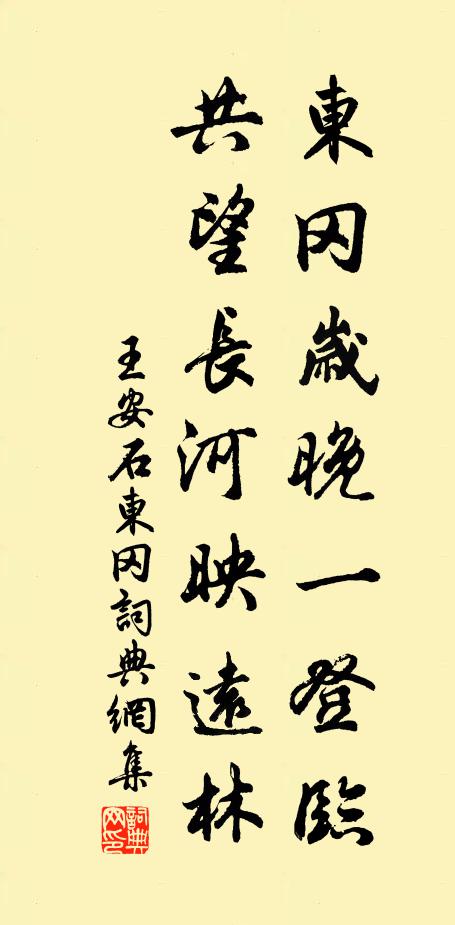 東冈歳晚一登臨
共望長河映遠林
王安石東冈詞典網集
詞典网印